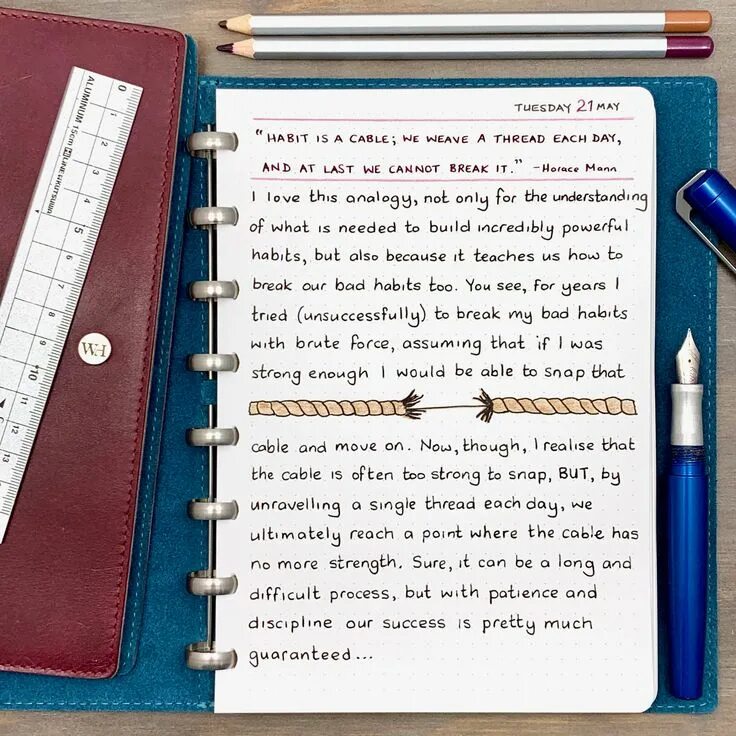 TUESDAY 21 MAY
"HABIT IS A CABLE; WE WEAVE A THREAD EACH DAY,
AND AT LAST WE CANNOT BREAK IT." -Horace Mann
I love this analogy, not only for the understanding
of what is needed to build incredibly powerful
habits, but also because it teaches us how to
break our bad habits too. You see, for years I
tried (unsuccessfully) to break my bad habits
with brute force, assuming that if I was
strong enough I would be able to snap that
cable and move on. Now, though, I realise that
the cable is often too strong to snap, BUT, by
unravelling a single thread each day, we
ultimately reach a point where the cable has
no more strength. Sure, it can be a long and
difficult process, but with patience and
discipline our success is pretty much
guaranteed...
ALUMINUM 15cm
0
1
2
3
4
5
6
7
8
9
10
11
12
13
WH